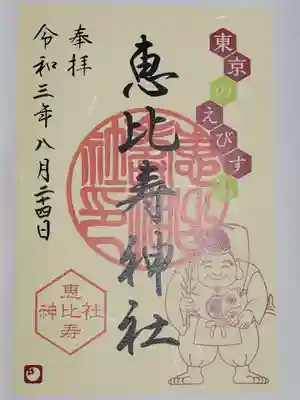 東京のえびすさま
奉拝
恵比寿神社
令和三年八月二十四日
恵
神比社
寿